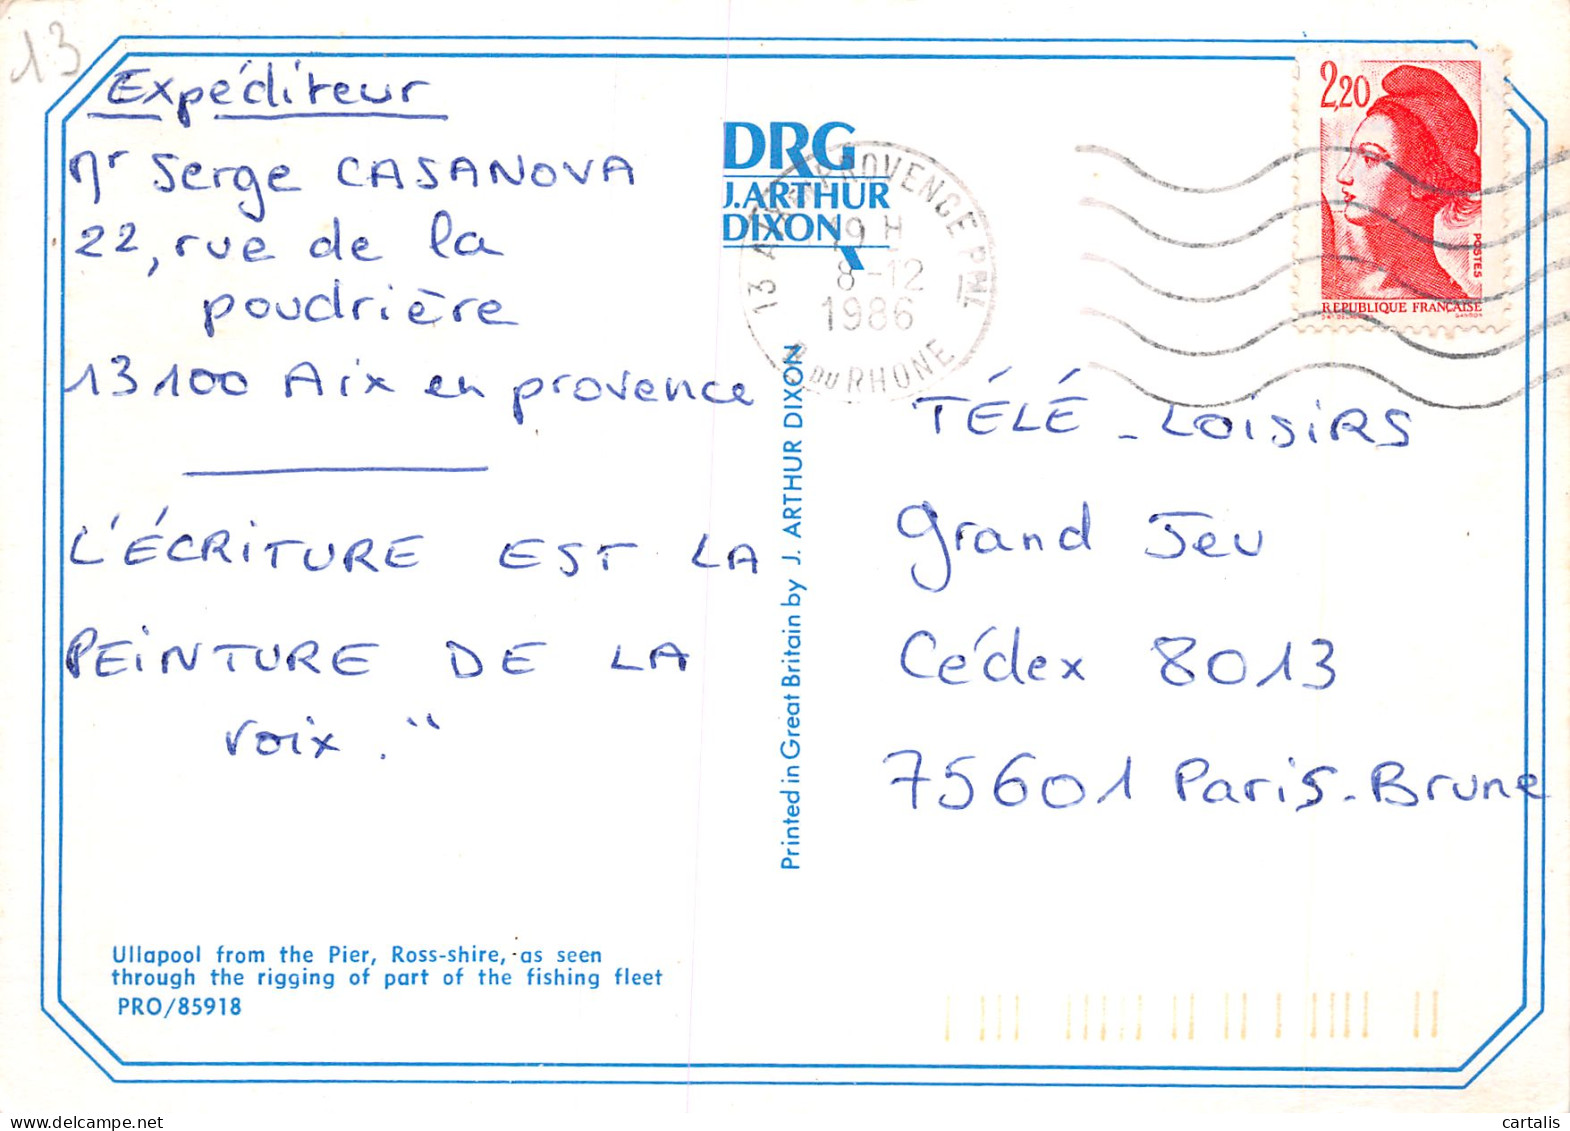 13
Expéditeur
Mr Serge CASANOVA
22, rue de la
poudrière
13100 Aix en provence
L'ÉCRITURE EST LA
PEINTURE DE LA
VOIX."
Ullapool from the Pier, Ross-shire, as seen
through the rigging of part of the fishing fleet
PRO/85918
DRG
J. ARTHUR
DIXON
Printed in Great Britain by J. ARTHUR DIXON
13 AIX PROVENCE PPAL
19 H
8-12
1986
B DU RHONE
2,20
POSTES
REPUBLIQUE FRANÇAISE
TÉLÉ-LOISIRS
Grand Jeu
Cédex 8013
75601 Paris-Brune
cartalis
delcampe.net